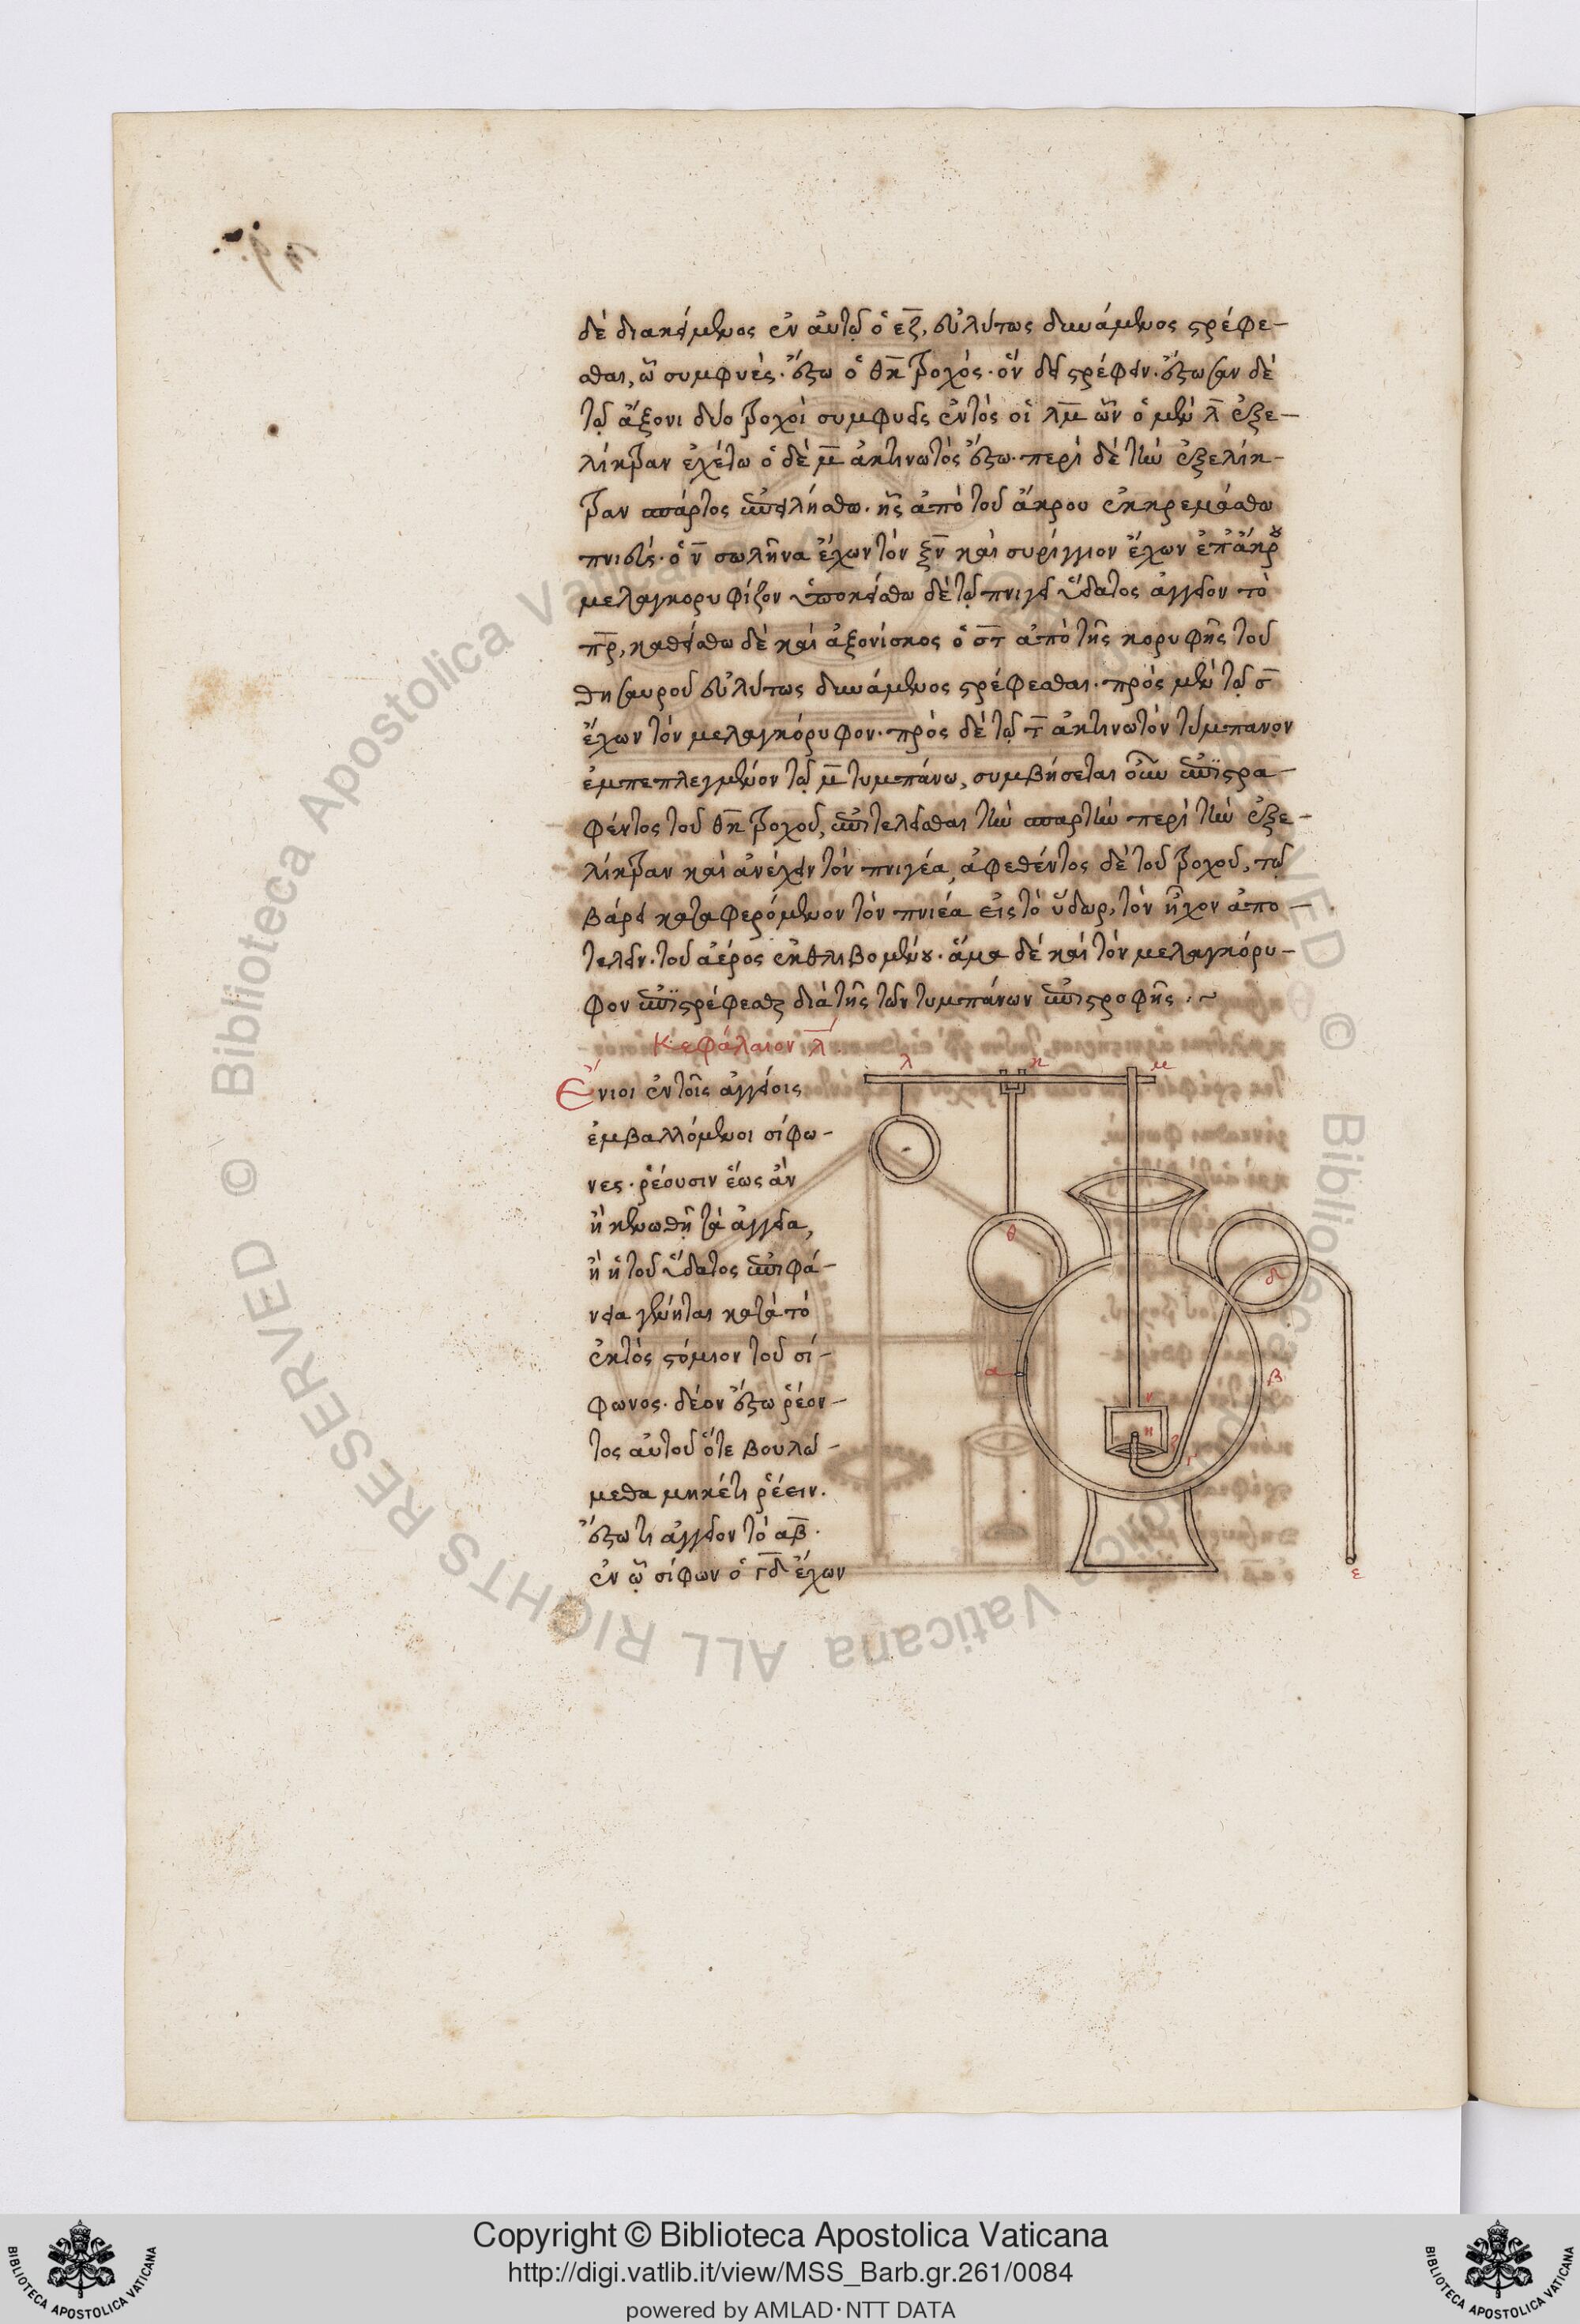 δὲ διακείμενος ἐν αὐτῷ ὁ εζ, εὐλύτως δυνάμενος στρέφε-
σθαι, ᾧ συμφυὲς. ἔστω ὁ θκ τροχός. ὃν δεῖ στρέφειν. ἔστωσαν δὲ
τῷ ἄξονι δύο τροχοὶ συμφυεῖς ἐντὸς οἱ λμ ὧν ὁ μὲν λ ἐξε-
λίκτραν ἐχέτω ὁ δὲ μ ἀκτινωτὸς ἔστω. περὶ δὲ τὴν ἐξελίκ-
τραν σπάρτος ἐπειλήσθω. ἧς ἀπὸ τοῦ ἄκρου ἐκκρεμάσθω
πνιεὺς. ὁ ν σωλῆνα ἔχων τὸν ξν καὶ συρίγγιον ἔχων ἐπ' ἄκρου
μελαγκορυφίζον ὑποκείσθω δὲ τῷ πνιγεῖ ὕδατος ἀγγεῖον τὸ
πρ, καθείσθω δὲ καὶ ἀξονίσκος ὁ στ ἀπὸ τῆς κορυφῆς τοῦ
θησαυροῦ εὐλύτως δυνάμενος στρέφεσθαι. πρὸς μὲν τῷ σ
ἔχων τὸν μελαγκόρυφον. πρὸς δὲ τῷ τ ἀκτινωτὸν τύμπανον
ἐμπεπλεγμένον τῷ μ τυμπάνω, συμβήσεται οὖν ἐπιστρα-
φέντος τοῦ θκ τροχοῦ, ἐπιτελεῖσθαι τὴν σπαρτὴν περὶ τὴν ἐξε-
λίκτραν καὶ ἀνέχειν τὸν πνιγέα, ἀφεθέντος δὲ τοῦ τροχοῦ, τῷ
βάρει καταφερόμενον τὸν πνιέα εἰς τὸ ὕδωρ, τὸν ἦχον ἀπο-
τελεῖν. τοῦ ἀέρος ἐκθλιβομένου. ἅμα δὲ καὶ τὸν μελαγκόρυ-
φον ἐπιστρέφεσθαι διὰ τῆς τῶν τυμπάνων ἐπιστροφῆς :~
Κεφάλαιον λ
Ἔνιοι ἐν τοῖς ἀγγείοις
ἐμβαλλόμενοι σίφω-
νες. ῥέουσιν ἕως ἂν
ἢ κενωθῇ τὰ ἀγγεῖα,
ἢ ἡ τοῦ ὕδατος ἐπιφά-
νεια γένηται κατὰ τὸ
ἐκτὸς στόμιον τοῦ σί-
φωνος. δέον ἔστω ῥέον-
τος αὐτοῦ ὅτε βουλώ-
μεθα μηκέτι ῥέειν.
ἔστω τι ἀγγεῖον τὸ αβ.
ἐν ᾧ σίφων ὁ γδ ἔχων
λ
κ
μ
θ
δ
α
β
ν
η
ζ
γ
ε
Copyright © Biblioteca Apostolica Vaticana
http://digi.vatlib.it/view/MSS_Barb.gr.261/0084
powered by AMLAD·NTT DATA
BIBLIOTECA APOSTOLICA VATICANA
BIBLIOTECA APOSTOLICA VATICANA
© Biblioteca Apostolica Vaticana ALL RIGHTS RESERVED